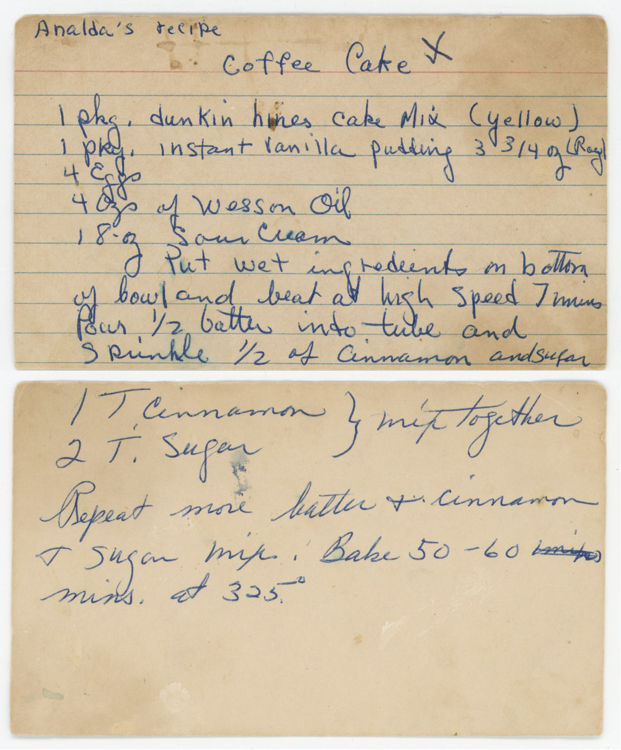 Analda's recipe
Coffee Cake X
1 pkg. dunkin hines cake Mix (yellow)
1 pkg. instant vanilla pudding 3 3/4 oz (Reg)
4 Eggs
4 ozs of Wesson Oil
1 8-oz Sour Cream
Put wet ingredeents on bottom
of bowl and beat at high speed 7 mins
Pour 1/2 batter into tube and
Sprinkle 1/2 of Cinnamon and sugar
1 T. Cinnamon } mix together
2 T. Sugar
Repeat more batter + cinnamon
+ sugar mix. Bake 50-60 mins
mins. at 325°